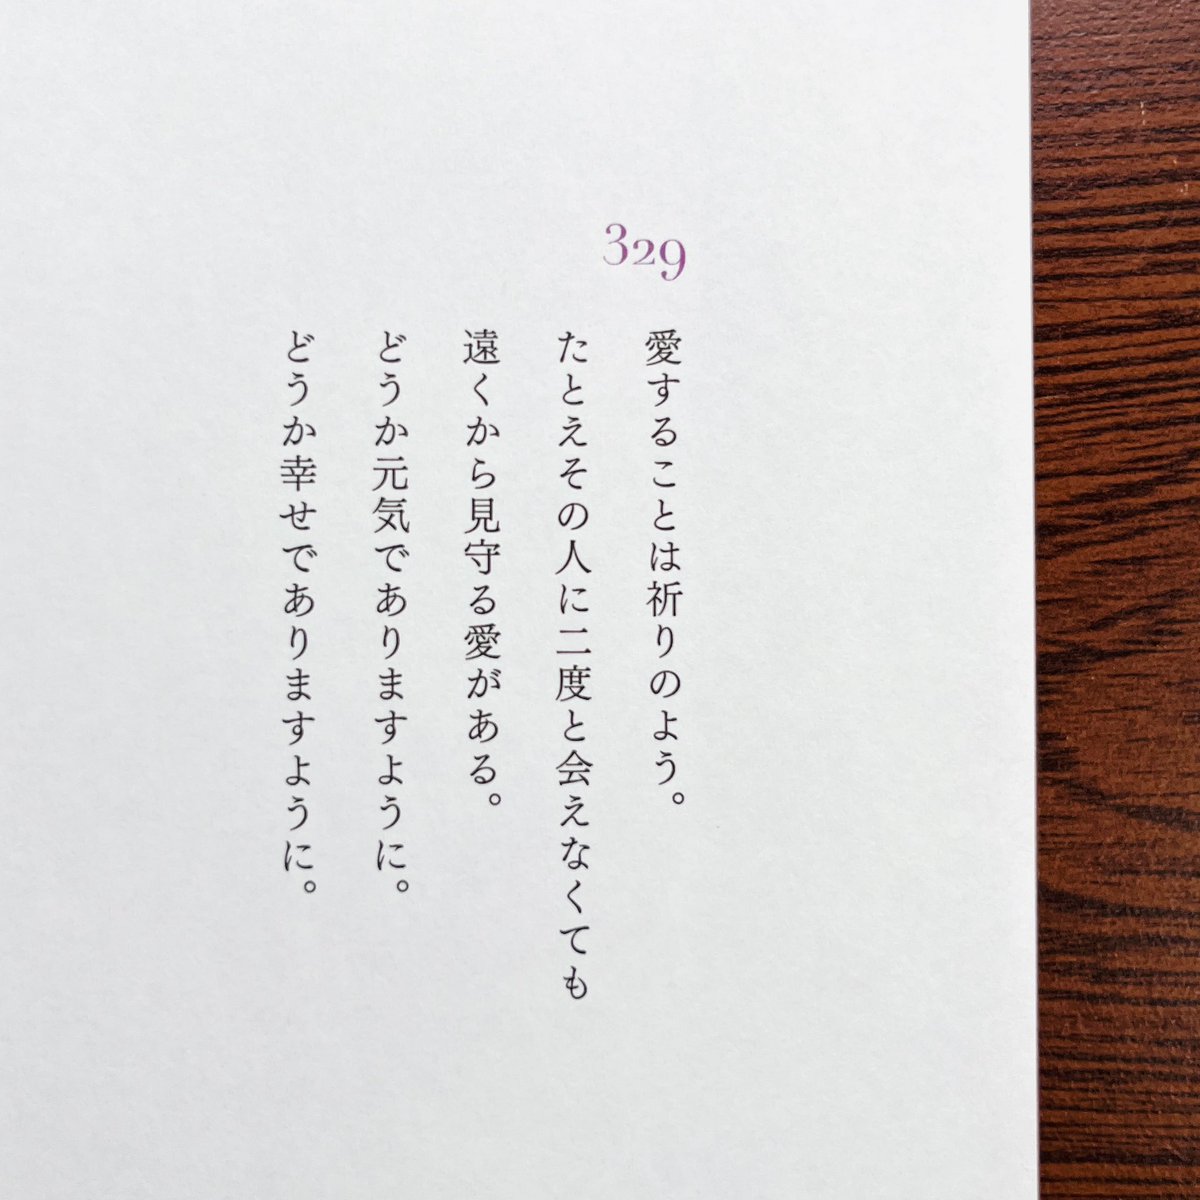 329
愛することは祈りのよう。
たとえその人に二度と会えなくても
遠くから見守る愛がある。
どうか元気でありますように。
どうか幸せでありますように。